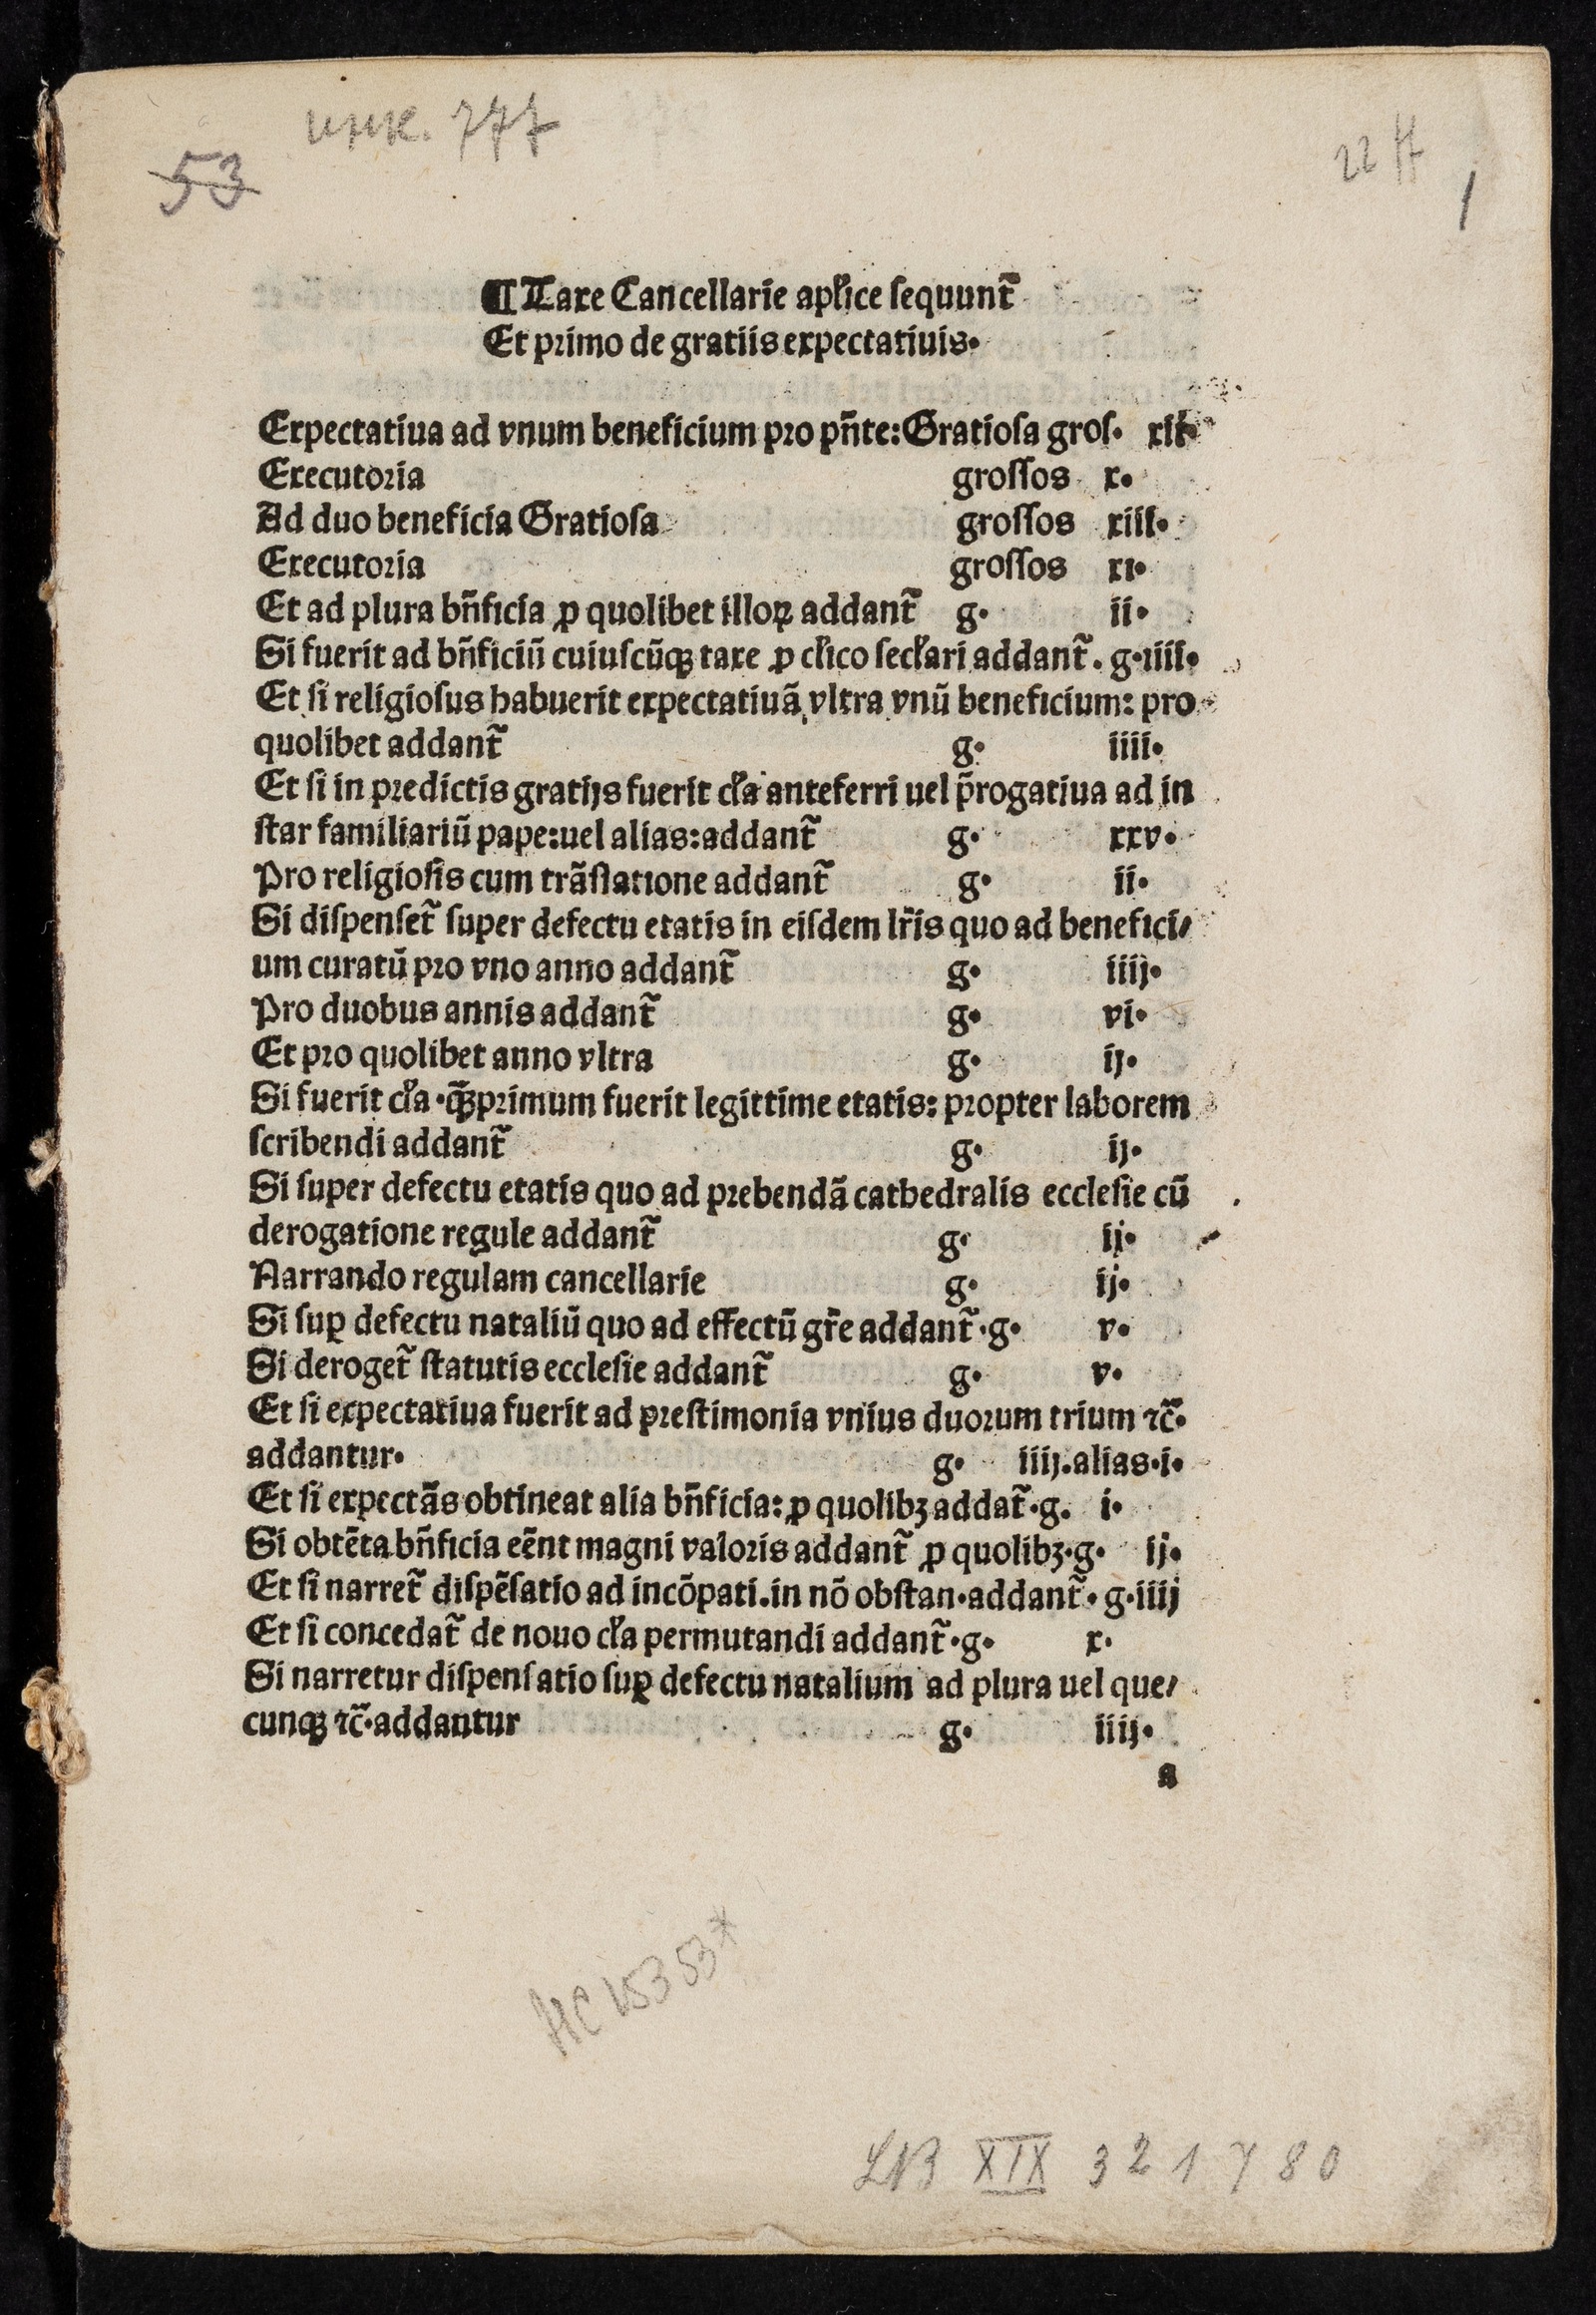 инк. 777
53
22 H
1
¶ Taxe Cancellarie apl̃ice sequunt̃
Et primo de gratiis expectatiuis.
Expectatiua ad vnum beneficium pro pñte: Gratiosa gros. xii.
Executoria grossos x.
Ad duo beneficia Gratiosa grossos xiii.
Executoria grossos xi.
Et ad plura bñficia ꝓ quolibet illoꝝ addant̃ g. ii.
Si fuerit ad bñficiũ cuiuscũqꝫ taxe ꝓ cl̃ico secl̃ari addant̃. g. iiii.
Et si religiosus habuerit expectatiuã vltra vnũ beneficium: pro
quolibet addant̃ g. iiii.
Et si in predictis gratijs fuerit cl̃a anteferri uel p̃rogatiua ad in
star familiariũ pape: uel alias: addant̃ g. xxv.
Pro religiosis cum trãslatione addant̃ g. ii.
Si dispenset̃ super defectu etatis in eisdem lr̃is quo ad benefici/
um curatũ pro vno anno addant̃ g. iiij.
Pro duobus annis addant̃ g. vi.
Et pro quolibet anno vltra g. ij.
Si fuerit cl̃a. qꝫ̃primum fuerit legittime etatis: propter laborem
scribendi addant̃ g. ij.
Si super defectu etatis quo ad prebendã cathedralis ecclesie cũ
derogatione regule addant̃ g. ij.
Narrando regulam cancellarie g. ij.
Si suꝑ defectu nataliũ quo ad effectũ gr̃e addant̃. g. v.
Si deroget̃ statutis ecclesie addant̃ g. v.
Et si expectatiua fuerit ad prestimonia vnius duorum trium ⁊c̃.
addantur. g. iiij. alias. i.
Et si expectãs obtineat alia bñficia: ꝓ quolibꝫ addat̃. g. i.
Si obtẽta bñficia eẽnt magni valoris addant̃ ꝓ quolibꝫ. g. ij.
Et si narret̃ dispẽsatio ad incõpati. in nõ obstan. addant̃. g. iiij
Et si concedat̃ de nouo cl̃a permutandi addant̃. g. x.
Si narretur dispensatio suꝑ defectu natalium ad plura uel que/
cunqꝫ ⁊c̃. addantur g. iiij.
a
HC 15353*
LNB XIX 321780